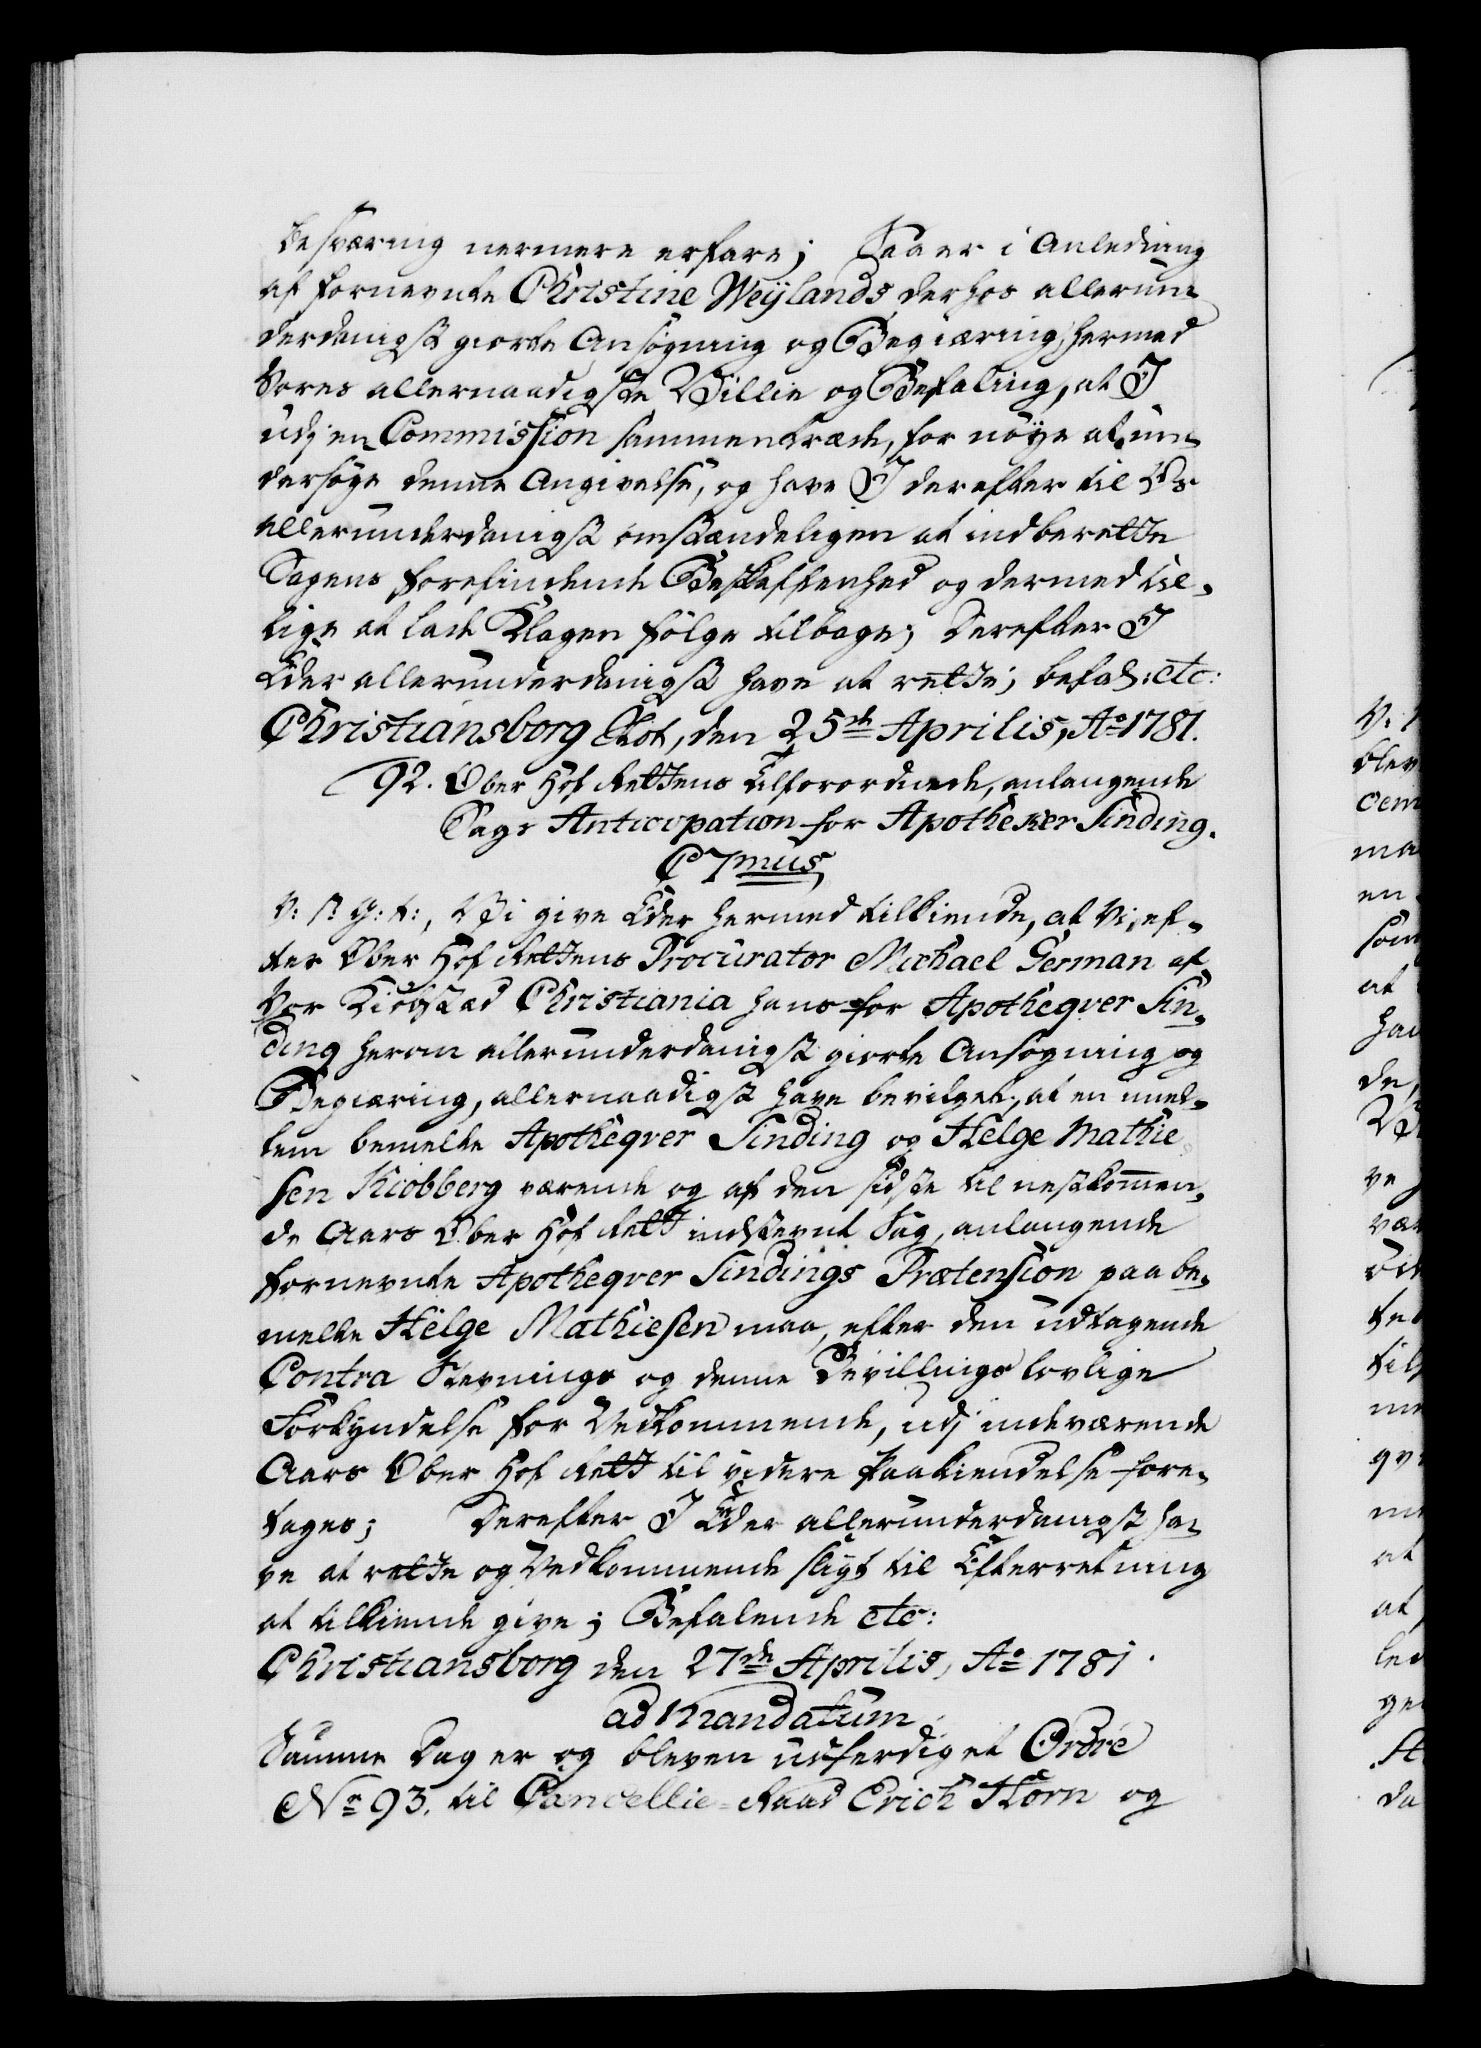 besværing nermere erfare; Saa er i Anledning
af fornevnte Christine Weÿlands derhos allerun-
derdanigst giorte Ansøgning og Begiæring, hermed
Vores allernaadigste Villie og Befaling, at I
udj en Commission sammentræde, for nøye at un-
dersøge denne Angivelse, og have I derefter til Os
allerunderdanigst omstændeligen at indberette
Sagens forefindende Beskaffenhed og dermed til-
lige at lade Klagen følge tilbage; Derefter I
Eder allerunderdanigst have at rette; befal: etc:
Christiansborg Slot, den 25de Aprilis, Ao 1781.
92. Ober Hof Rettens tilforordnede, anlangende
Sags Anticipation for Apotheker Sinding.
C 7mus
V: S: G: T:, Vi give Eder hermed tilkiende, at Vi, ef-
ter Ober Hof Rettens Procurator Michael German af
Vor Kiøbstad Christiania hans for Apotheqver Sin-
ding herom allerunderdanigst giorte Ansøgning og
Begiæring, allernaadigst have bevilget, at en imel-
lem bemelte Apotheqver Sinding og Helge Mathie
sen Kiobberg værende og af den sidste til nestkommen-
de Aars Ober Hof Rett indstevnt Sag, anlangende
fornevnte Apotheqver Sindings Prætension paa be-
melte Helge Mathiesen maa, efter den udtagende
Contra Stevnings og denne Bevillings lovlige
Forkyndelse for Vedkommende, udj indeværende
Aars Ober Hof Rett til videre Paakiendelse fore-
tages; Derefter I Eder allerunderdanigst ha-
ve at rette og Vedkommende sligt til Efterretning
at tilkiende give; Befalende etc:
Christiansborg den 27de Aprilis, Ao 1781.
ad Mandatum.
Samme Dag er og bleven udferdiget Ordre
No 93. til Cancellie-Raad Erich Horn og